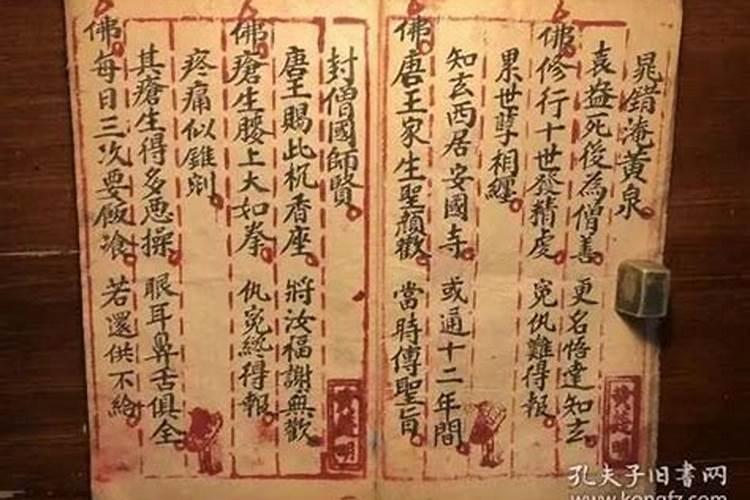 晁錯淹黄泉
袁盎死後為僧善 更名悟達知玄
佛修行十世發精虔 寃仇難得報
累世孽相纏
知玄西居安國寺 或通十二年間
佛唐王家生聖顏歡 當時傳聖旨
封僧國師賢
唐王賜此枕香座 將汝福謝無歡
佛瘡生腰上大如拳 仇寃終得報
疼痛似錐剜
其瘡生得多惡操 眼耳鼻舌俱全
佛每日三次要飯飡 若還供不給
孔夫子旧書网
www.kongfz.com